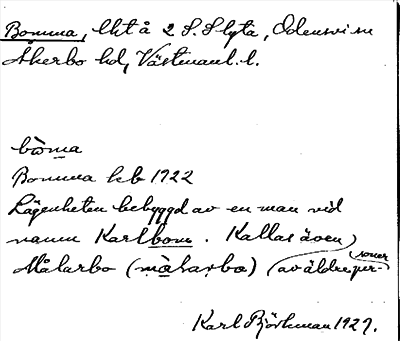 Bomma, lht å 2 S. Slyta, Odensvi sn
Åkerbo hd, Västmanl. l.
bòma
Bomma kb 1722
Lägenheten bebyggd av en man vid
namn Karlbom. Kallas även
Målarbo (màlarbo) (av äldre per-
soner)
Karl Björkman 1927.